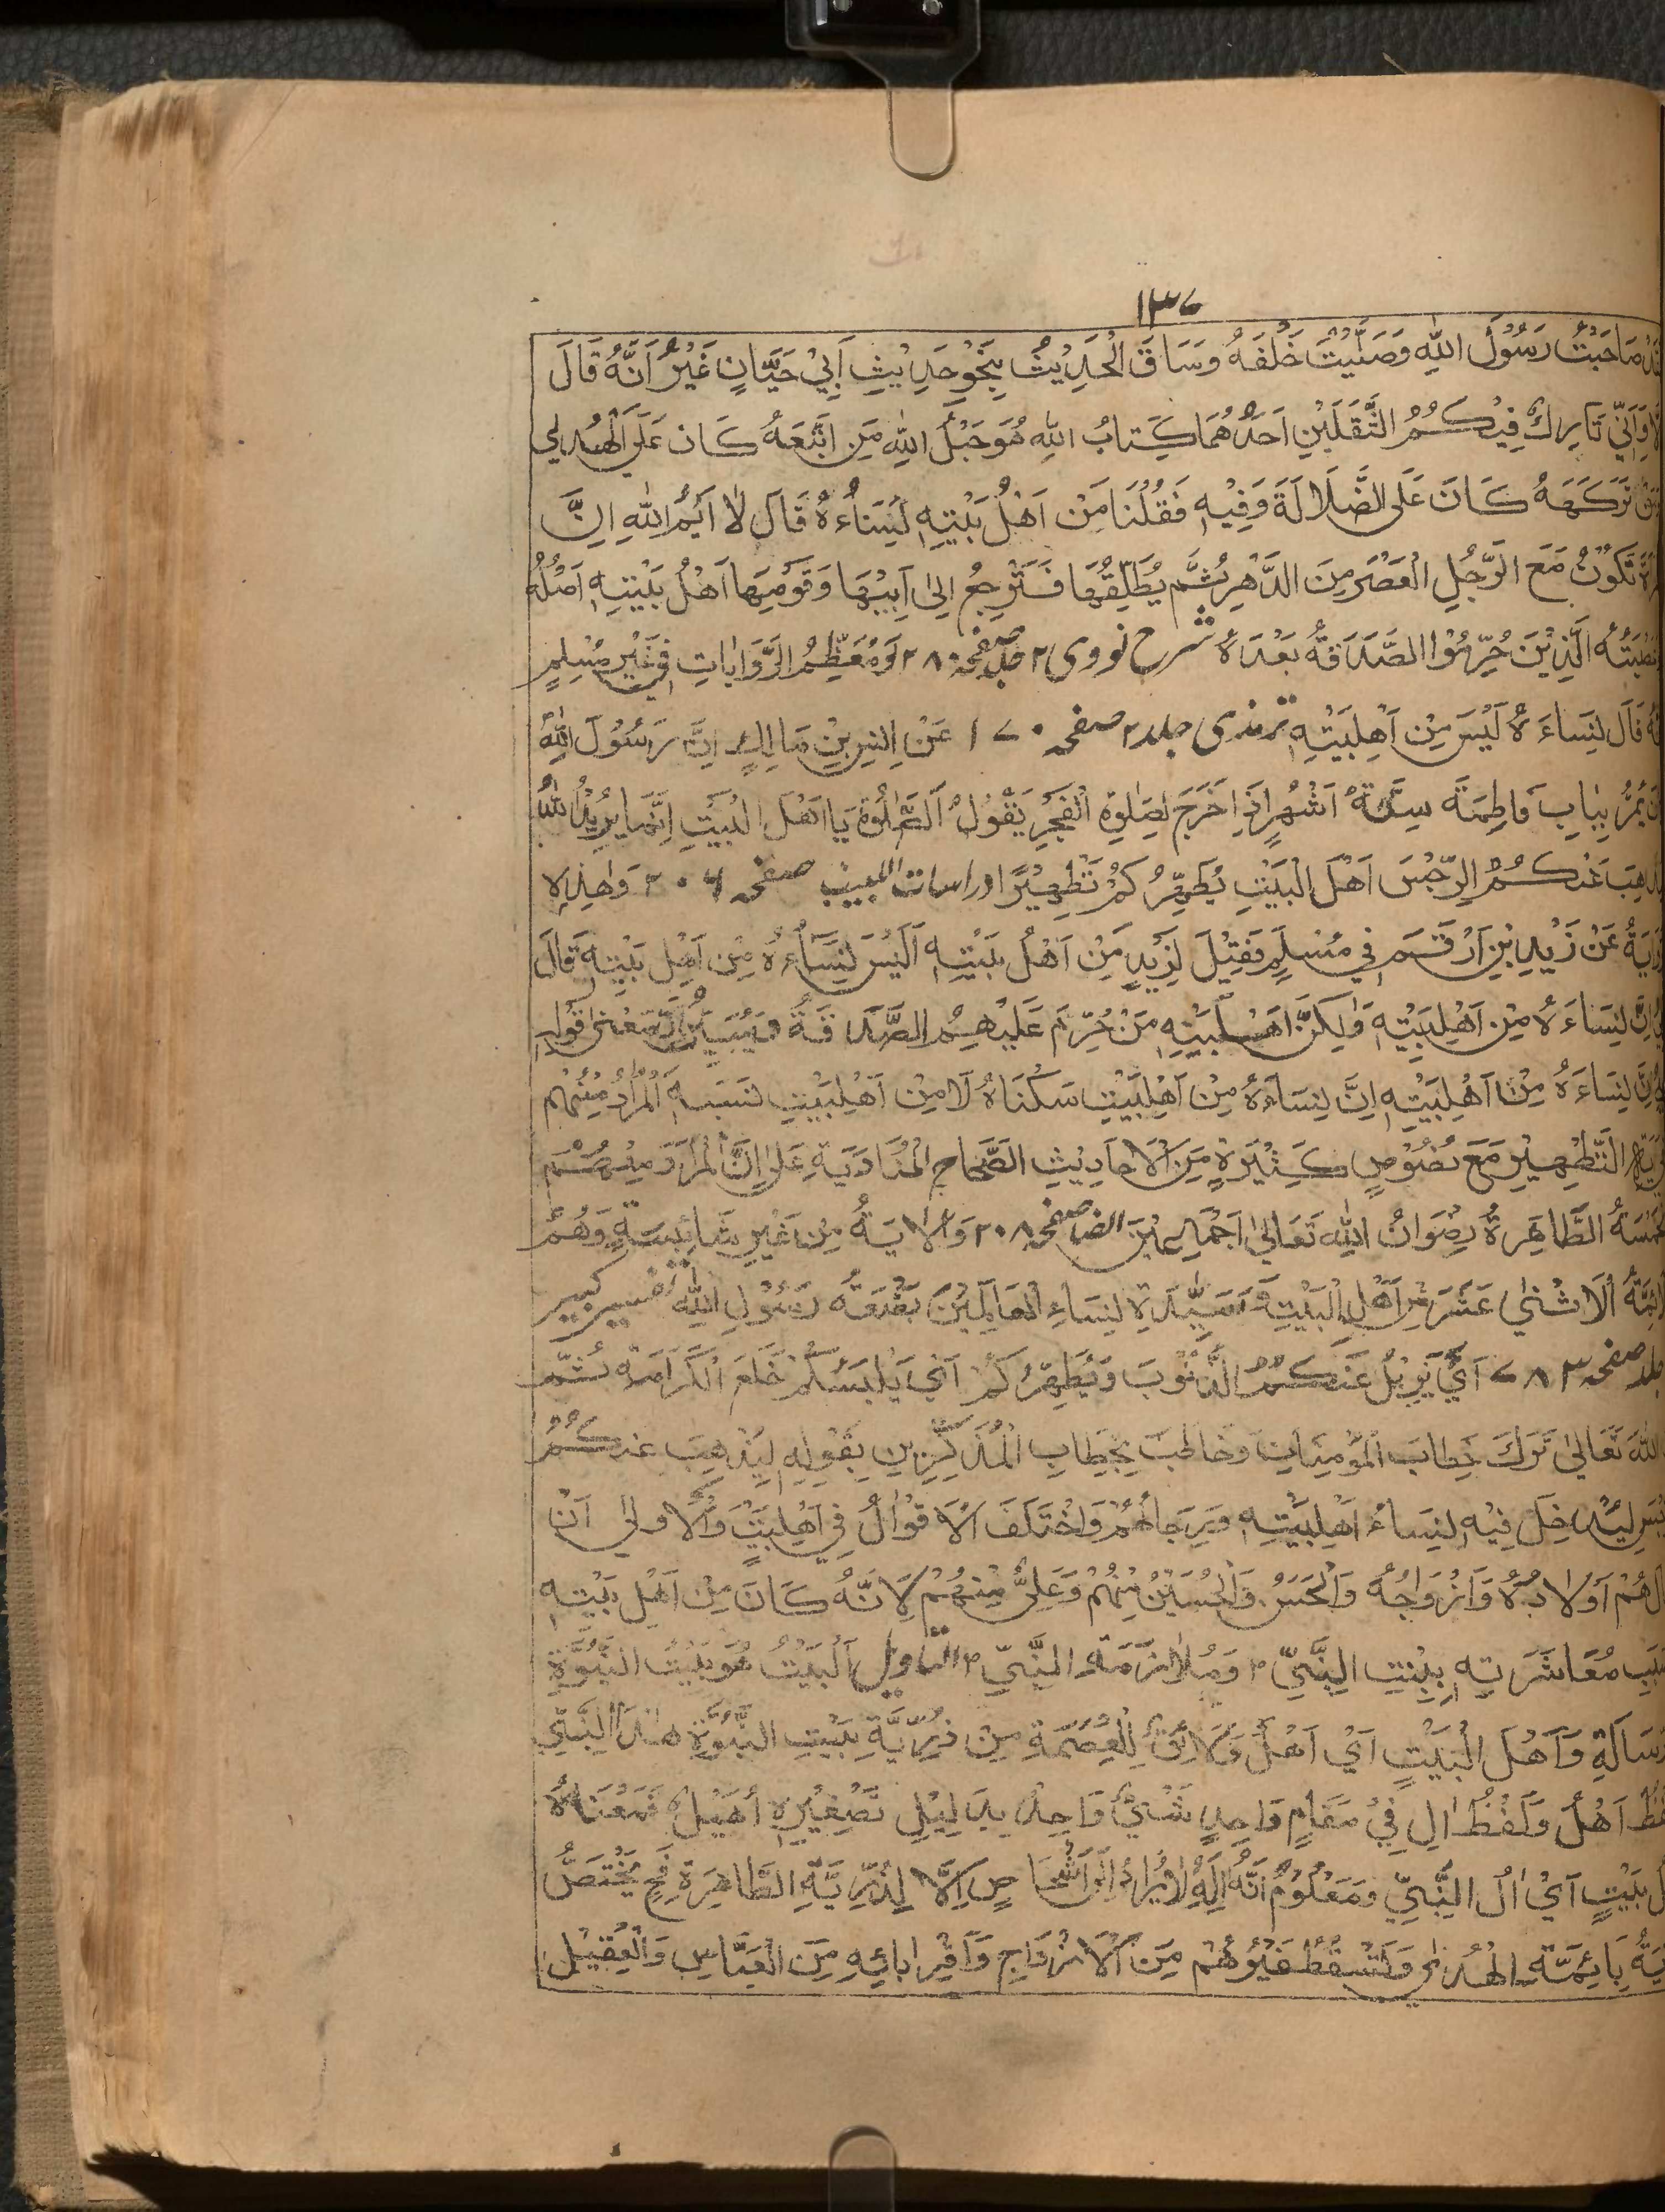 ١٣٧
صَاحَبْتُ رَسُوْلَ اللهِ وَصَلَّيْتُ خَلْفَهُ وَسَاقَ الْحَدِيْثُ بِنَحْوِ حَدِيْثِ اَبِيْ حَيَّانٍ غَيْرُ اَنَّهُ قَالَ
وَاِنِّيْ تَارِكٌ فِيْكُمُ الثَّقَلَيْنِ اَحَدُهُمَا كِتَابُ اللهِ هُوَ حَبْلُ اللهِ مَنِ اتَّبَعَهُ كَانَ عَلَى الْهُدٰى
تَرَكَهُ كَانَ عَلَى الضَّلَالَةَ وَفِيْهِ فَقُلْنَا مَنْ اَهْلُ بَيْتِهِ نِسَاءُهُ قَالَ لَا اَيْمُ اللهِ اِنَّ
تَكُوْنُ مَعَ الرَّجُلِ الْعَصْرَ مِنَ الدَّهْرِ ثُمَّ يُطَلِّقُهَا فَتَرْجِعُ اِلىٰ اَبِيْهَا وَقَوْمِهَا اَهْلُ بَيْتِهِ اَصْلُهُ
الَّذِيْنَ حُرِّمُوْا الصَّدَقَةُ بَعْدَهُ شرح نووى جلد ٢ صفحه ٢٨٠ وَمُعَظِّمُ الرِّوَايَاتِ فِيْ غَيْرِ مُسْلِمٍ
قَالَ نِسَاءَهُ لَيْسَ مِنْ اَهْلِبَيْتِهِ ترمذى جلد ٢ صفحه ١٧٠ عَنْ اَنَسِ بْنِ مَالِكٍ اِنَّ رَسُوْلَ اللهِ
يَمُرُّ بِبَابِ فَاطِمَةَ سِتَّةَ اَشْهُرٍ اِذَا خَرَجَ لِصَلٰوةِ الْفَجْرِ يَقُوْلُ الصَّلٰوةَ يَا اَهْلَ الْبَيْتِ اِنَّمَا يُرِيْدُ اللهُ
عَنْكُمُ الرِّجْسَ اَهْلَ الْبَيْتِ يُطَهِّرُكُمْ تَطْهِيْرًا دراسات اللبيب صفحه ٢٠٦ وَهٰذِهِ
عَنْ زَيْدِ بْنِ اَرْقَمَ فِيْ مُسْلِمٍ فَقِيْلَ لِزَيْدٍ مَنْ اَهْلُ بَيْتِهِ اَلَيْسَ نِسَاءُهُ مِنْ اَهْلِ بَيْتِهِ قَالَ
اِنَّ نِسَاءَهُ مِنْ اَهْلِبَيْتِهِ وَلٰكِنَّ اَهْلَبَيْتِهِ مَنْ حُرِّمَ عَلَيْهِمُ الصَّدَقَةُ مَعْنٰى قَوْلِهِ
نِسَاءَهُ مِنْ اَهْلِبَيْتِهِ اِنَّ نِسَاءَهُ مِنْ اَهْلِبَيْتِ سَكْنَاهُ لَا مِنْ اَهْلِبَيْتِ نَسَبِهِ الْمُرَادُ مِنْهُمْ
التَّطْهِيْرِ مَعَ نُصُوْصٍ كَثِيْرَةٍ مِنَ الْاَحَادِيْثِ الصَّحَاحِ الْمُنَادِيَةِ عَلىٰ اِنَّ الْمُرَادَ مِنْهُمْ
الطَّاهِرَةُ رِضْوَانُ اللهِ تَعَالىٰ اَجْمَعِيْنَ ايضا صفحه ٢٠٨ وَالْاٰيَةُ مِنْ غَيْرِ شَائِبَةٍ وَهُمْ
الْاِثْنىٰ عَشَرَ مِنْ اَهْلِ الْبَيْتِ وَسَيِّدَةِ نِسَاءِ الْعَالَمِيْنَ بَضْعَةُ رَسُوْلِ اللهِ تفسير كبير
جلد صفحه ٧٨٣ اَيْ يُزِيْلُ عَنْكُمُ الذُّنُوْبَ وَيُطَهِّرُكُمْ اَيْ يَلْبَسُكُمْ خَلَعَ الْكَرَامَةِ ثُمَّ
اللهَ تَعَالىٰ تَرَكَ خِطَابَ الْمُؤْمِنَاتِ وَخَاطَبَ بِخِطَابِ الْمُذَكَّرِيْنِ بِقَوْلِهِ لِيُذْهِبَ عَنْكُمُ
لِيَدْخِلَ فِيْهِ نِسَاءُ اَهْلِبَيْتِهِ وَرِجَالُهُمْ وَاخْتَلَفَ الْاَقْوَالُ فِيْ اَهْلِبَيْتٍ وَالْاَوْلىٰ اَنْ
هُمْ اَوْلَادُهُ وَاَزْوَاجُهُ وَالْحَسَنُ وَالْحُسَيْنُ مِنْهُمْ وَعَلِىٌّ مِنْهُمْ لِاَنَّهُ كَانَ مِنْ اَهْلِ بَيْتِهِ
مُعَاشَرَتِهِ بِبِنْتِ النَّبِىِّ وَمُلَازَمَةِ النَّبِىِّ التاويل اَلْبَيْتُ هُوَ بَيْتُ النُّبُوَّةِ
وَاَهْلَ الْبَيْتِ اَيْ اَهْلُ وَلَائِقٌ لِلْعِصْمَةِ مِنْ ذُرِّيَّةِ بَيْتِ النُّبُوَّةِ هٰذَا النَّبِيِّ
اَهْلُ وَلَفْظُ اٰلِ فِيْ مَقَامٍ وَاحِدٍ شَيْءٌ وَاحِدٌ بِدَلِيْلِ تَصْغِيْرِهِ اُهَيْلٌ فَمَعْنَاهُ
بَيْتٍ اَيْ اٰلُ النَّبِيِّ وَمَعْلُوْمٌ اَنَّهُ اِلَّا لِذُرِّيَّةِ الطَّاهِرَةِ فَحِ يَخْتَصُّ
بِائِمَّةِ الْهُدٰى وَتَسْقُطُ غَيْرُهُمْ مِنَ الْاَزْوَاجِ وَاَقْرِبَائِهِ مِنَ الْعَبَّاسِ وَالْعَقِيْلِ